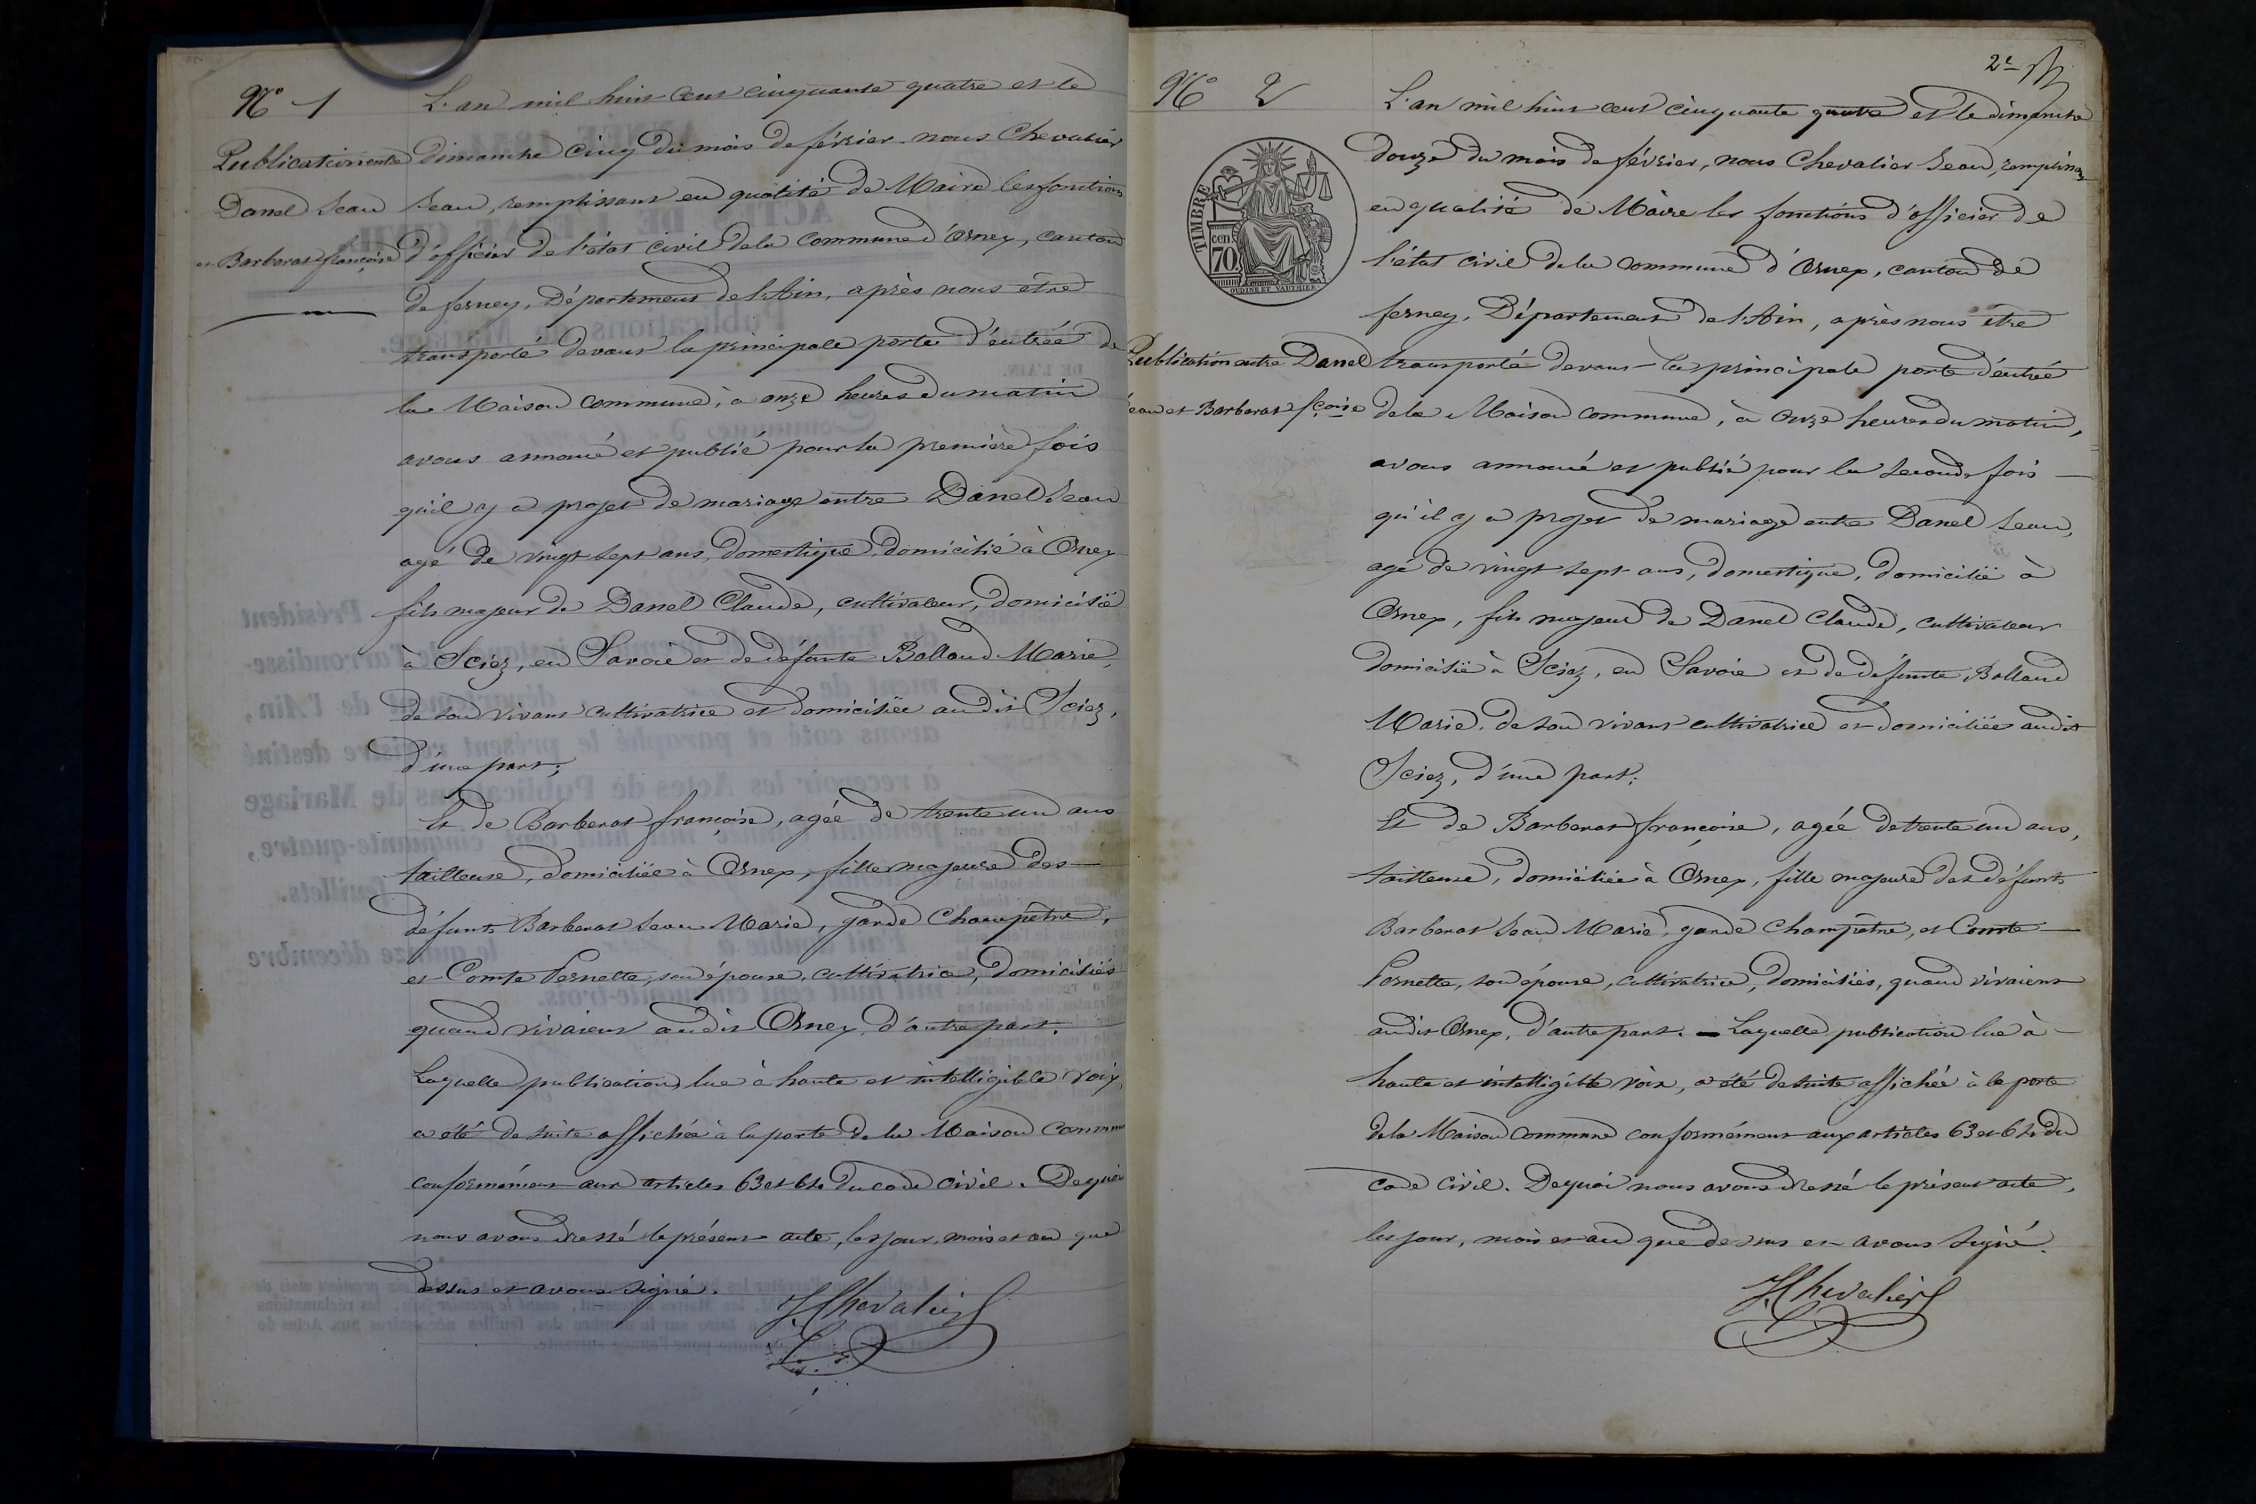 N° 1
Publication entre
Danel Jean
et Barberat françoise
L'an mil huit cent cinquante quatre et le
dimanche cinq du mois de février nous Chevalier
Jean, remplissant en qualité de Maire les fonctions
d'officier de l'état civil de la commune d'Ornex, canton
de ferney, Département de l'Ain, après nous etre
transporté devant la principale porte d'entrée de
la Maison commune, à onze heures du matin
avons annoncé et publié pour la première fois
qu'il y a projet de mariage entre Danel Jean
agé de vingt sept ans, domestique, domicilié à Ornex
fils majeur de Danel Claude, cultivateur, domicilié
à Sciez, en Savoie et de défunte Bolland Marie,
de son vivant cultivatrice et domiciliée audit Sciez,
d'une part;
Et de Barberat françoise, agée de trente un ans
tailleuse, domiciliée à Ornex, fille majeure des
défunts Barberat Jean Marie, garde Champêtre,
et Comte Pernette, son épouse, cultivatrice, domiciliés
quand vivaient audit Ornex, d'autre part.
Laquelle publication, lue à haute et intelligible voix,
a été de suite affichée à la porte de la Maison Commune
conformément aux articles 63 et 64 du code civil. De quoi
nous avons dressé le présent acte, les jour, mois et an que
dessus et avons signé.
J. Chevalier
2e
N° 2
TIMBRE
cen
70
OUDINÉ ET VAUTHIER
Publication entre Danel
Jean et Barberat fçoise
L'an mil huit cent cinquante quatre et le dimanche
douze du mois de février, nous Chevalier Jean, remplissant
en qualité de Maire les fonctions d'officier de
l'état civil de la commune d'Ornex, canton de
ferney, Département de l'Ain, après nous etre
transporté devant la principale porte d'entrée
de la Maison commune, à onze heures du matin,
avons annoncé et publié pour la seconde fois
qu'il y a projet de mariage entre Danel Jean,
agé de vingt sept ans, domestique, domicilié à
Ornex, fils majeur de Danel Claude, cultivateur
domicilié à Sciez, en Savoie et de défunte Bolland
Marie, de son vivant cultivatrice et domiciliée audit
Sciez, d'une part;
Et de Barberat françoise, agée de trente un ans,
tailleuse, domiciliée à Ornex, fille majeure des défunts
Barberat Jean Marie, garde Champêtre, et Comte
Pernette, son épouse, cultivatrice, domiciliés, quand vivaient
audit Ornex, d'autre part. — Laquelle publication lue à
haute et intelligible voix, a été de suite affichée à la porte
de la Maison commune conformément aux articles 63 et 64 du
code civil. De quoi nous avons dressé le présent acte,
les jour, mois et an que dessus et avons signé.
J. Chevalier